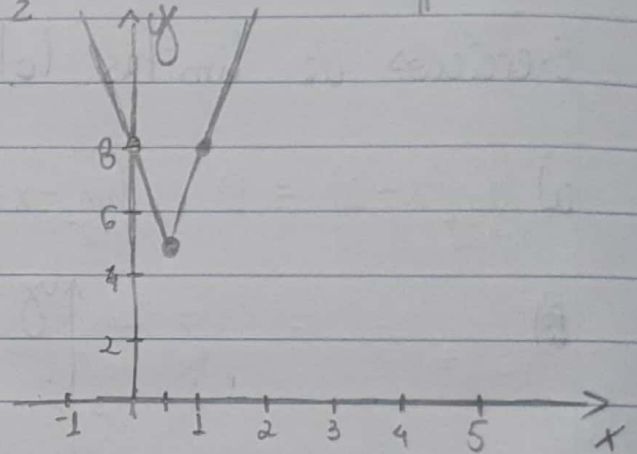 2
y
8
6
4
2
-1 1 2 3 4 5
x